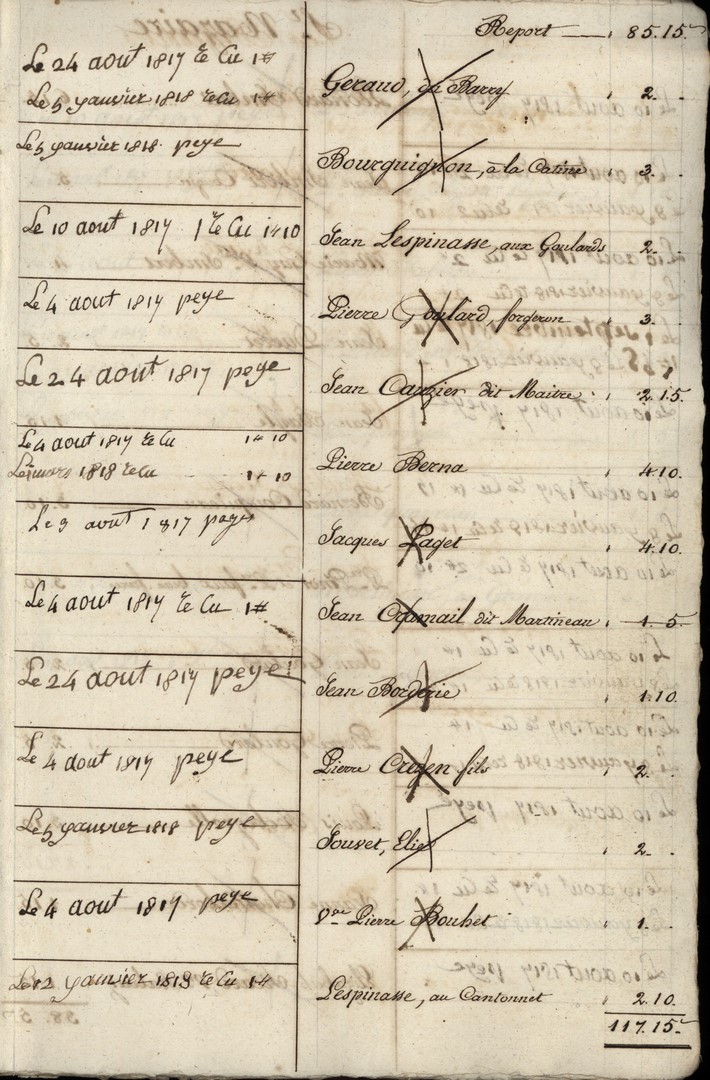 Report — , 85.15ˢ
Le 24 aout 1817 Recu 1#
Le 5 yanvier 1818 Recu 1#
Geraud, du Barry , 2. .
Le 5 yanvier 1818 peye
Bourguignon, à la Catine , 3. .
Le 10 aout 1817 Recu 1#10
Jean Lespinasse, aux Goulards , 2. .
Le 4 aout 1817 peye
Pierre Goulard, forgeron , 3. .
Le 24 aout 1817 peye
Jean dit Maitre , 2.15.
Le 4 aout 1817 Recu 1#10
1818 Recu 1#10
Pierre Berna , 4.10.
Le 9 aout 1817 paye
Jacques Paget , 4.10.
Le 4 aout 1817 Recu 1#
Jean Cramail dit Martineau , 1.5
Le 24 aout 1817 peye
Jean Borderie , 1.10
Le 4 aout 1817 peye
Pierre fils , 2. .
Le 5 yanvier 1818 peye
Jouvet, Elie , 2. .
Le 4 aout 1817 peye
Vᵛᵉ Pierre Bouhet , 1. .
Le 12 yanvier 1818 Recu 1#
Lespinasse, au Cantonnet , 2.10.
117.15ˢ